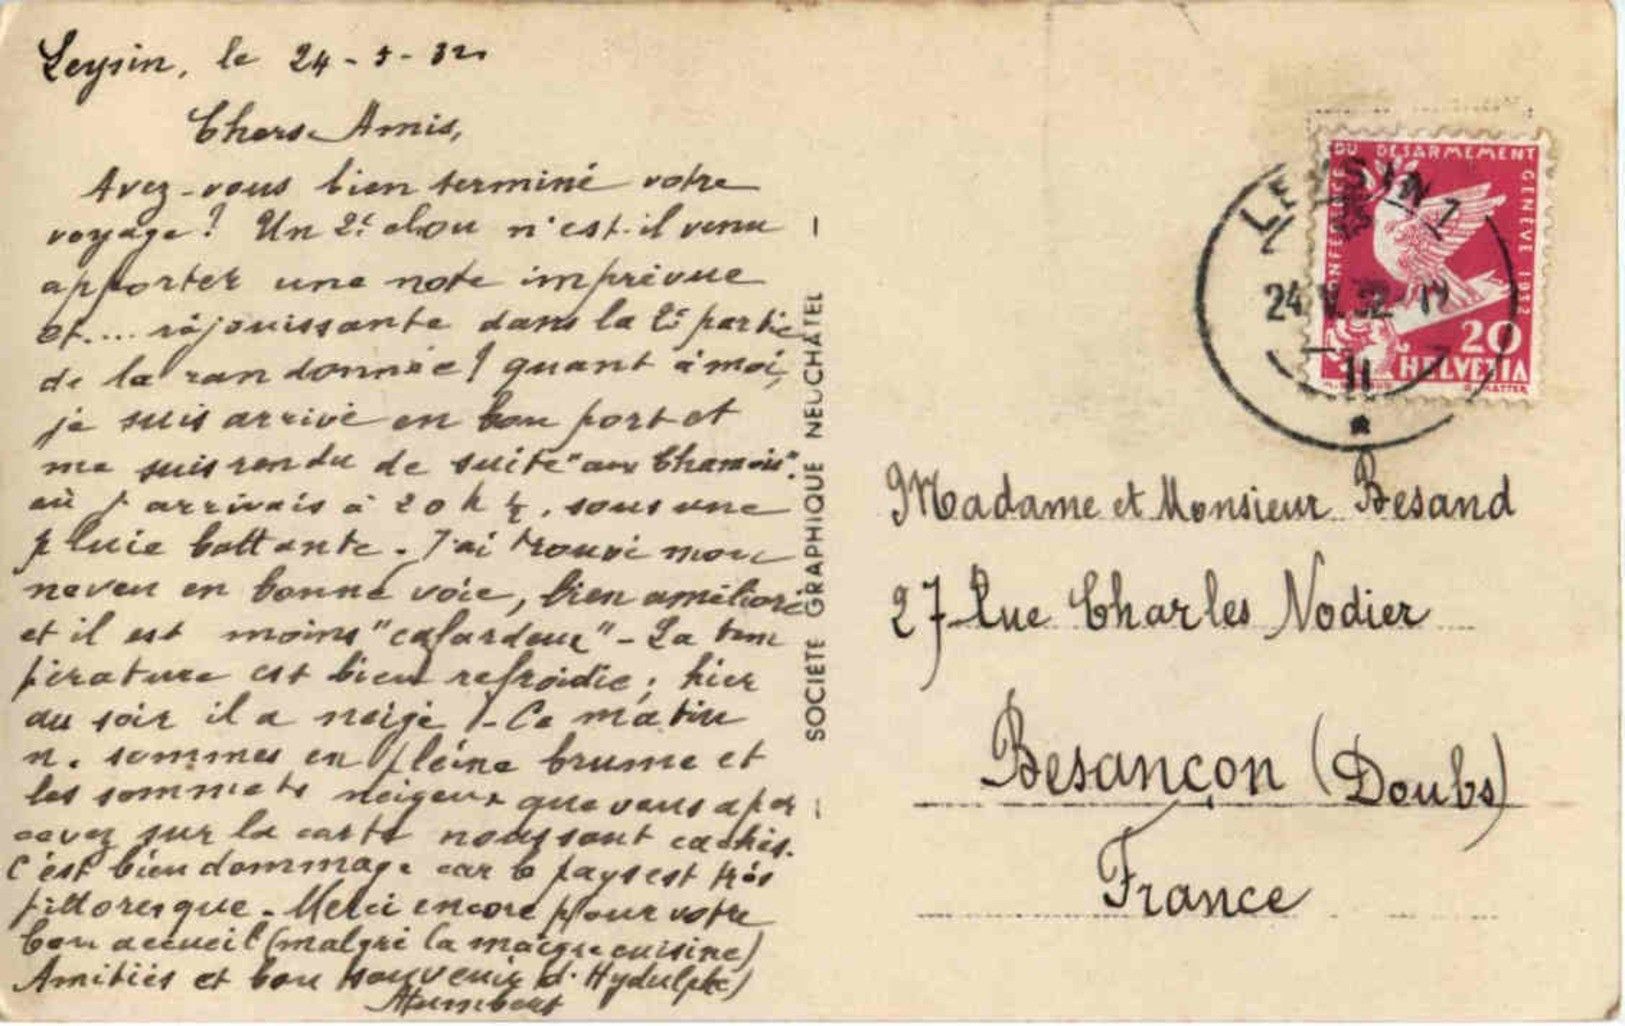 Leysin, le 24-5-32
Chers Amis,
Avez-vous bien terminé votre
voyage ? Un 2e clou n'est-il venu
apporter une note imprévue
et.... réjouissante dans la 2e partie
de la randonnée ! quant à moi,
je suis arrivé en bon port et
me suis rendu de suite "aux Chamois".
où j'arrivais à 20 h ½, sous une
pluie battante. J'ai trouvé mon
neveu en bonne voie, bien amélioré
et il est moins "cafardeux" - La tem
pérature est bien refroidie ; hier
au soir il a neigé - Ce matin
n. sommes en pleine brume et
les sommets neigeux que vous aper
cevez sur la carte nous sont cachés.
C'est bien dommage car le pays est très
pittoresque. Merci encore pour votre
bon accueil (malgré la maigre cuisine)
Amitiés et bon souvenir d'Hydulphe)
Humbert
SOCIÉTÉ GRAPHIQUE NEUCHÂTEL
CONFERENCE DU DESARMEMENT GENÈVE 1932
20
HELVETIA
LEYSIN 1
24.V.32-19
II
Madame et Monsieur Besand
27 Rue Charles Nodier
Besançon (Doubs)
France